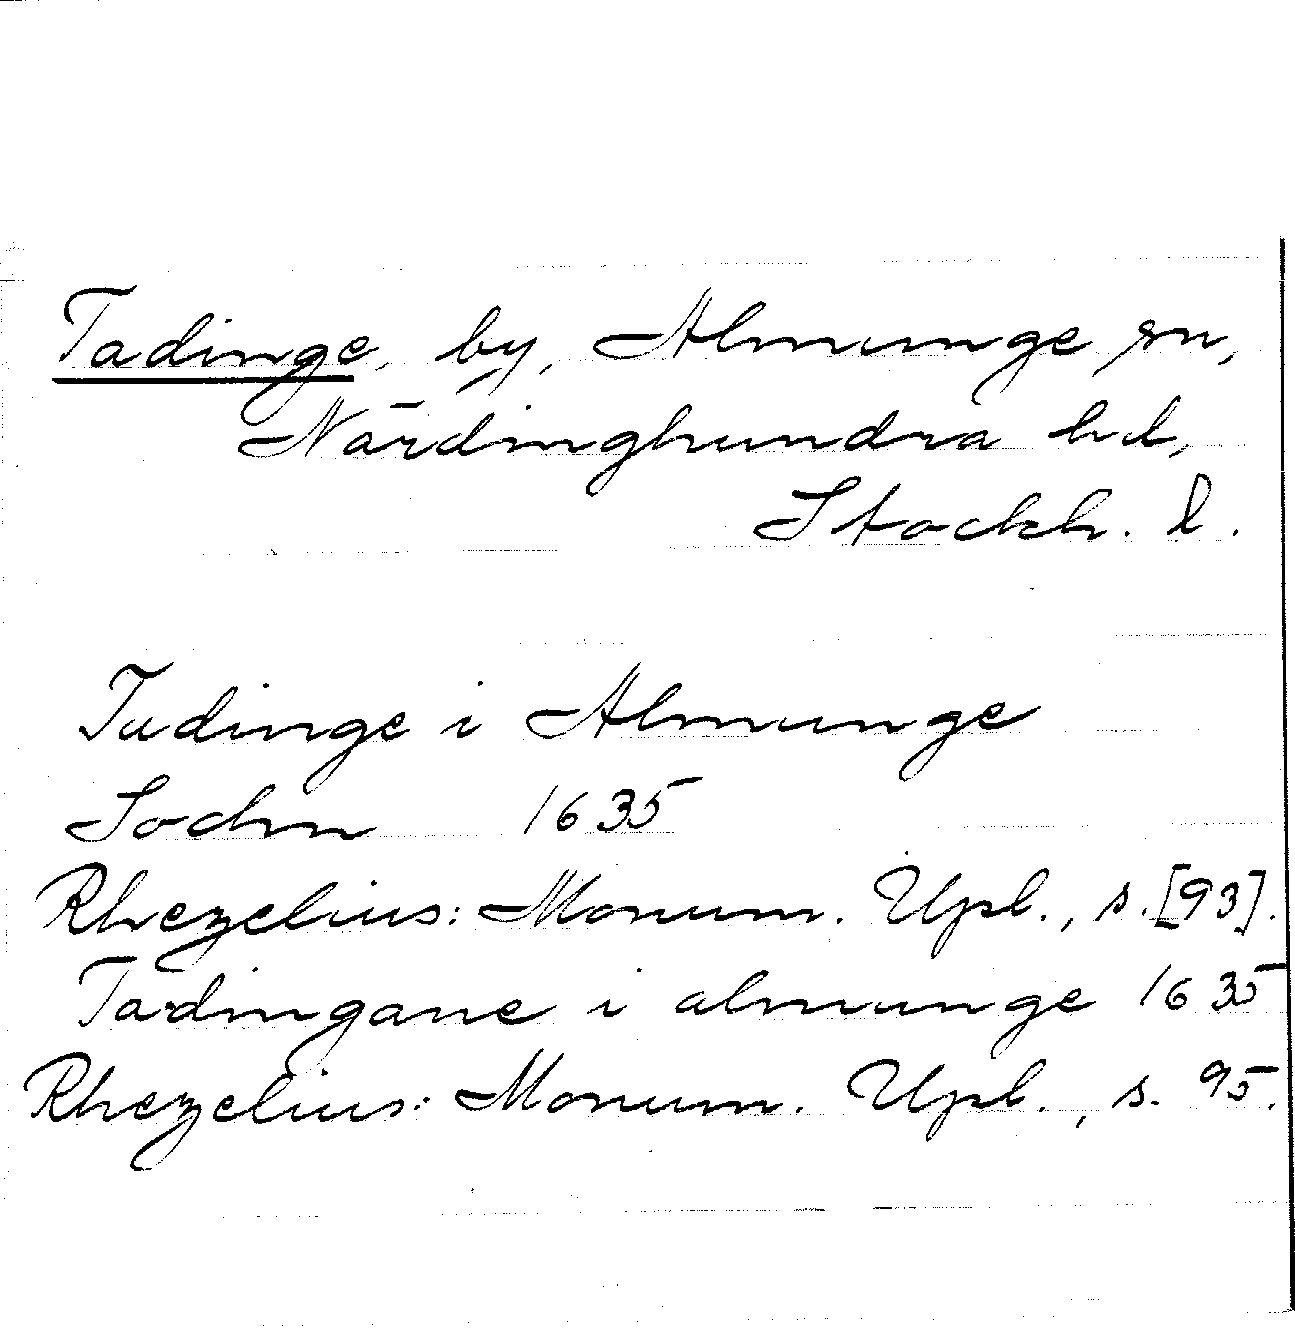 Tadinge, by, Almunge sn,
Närdinghundra hd,
Stockh. l.
Tudinge i Almunge
Sochn 1635
Rhezelius: Monum. Upl., s. [93].
Tadingane i almunge 1635
Rhezelius: Monum. Upl., s. 95.